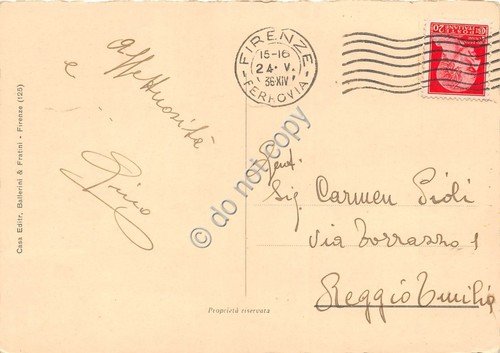 Affettuosità
e
Casa Editr. Ballerini & Fratini - Firenze (125)
FIRENZE
15-16
24 · V.
36 XIV
FERROVIA
20
do not copy
Gent.
Sig. Carmen Pioli
Via Torrazzo 1
Reggio Emilia
Proprietà riservata